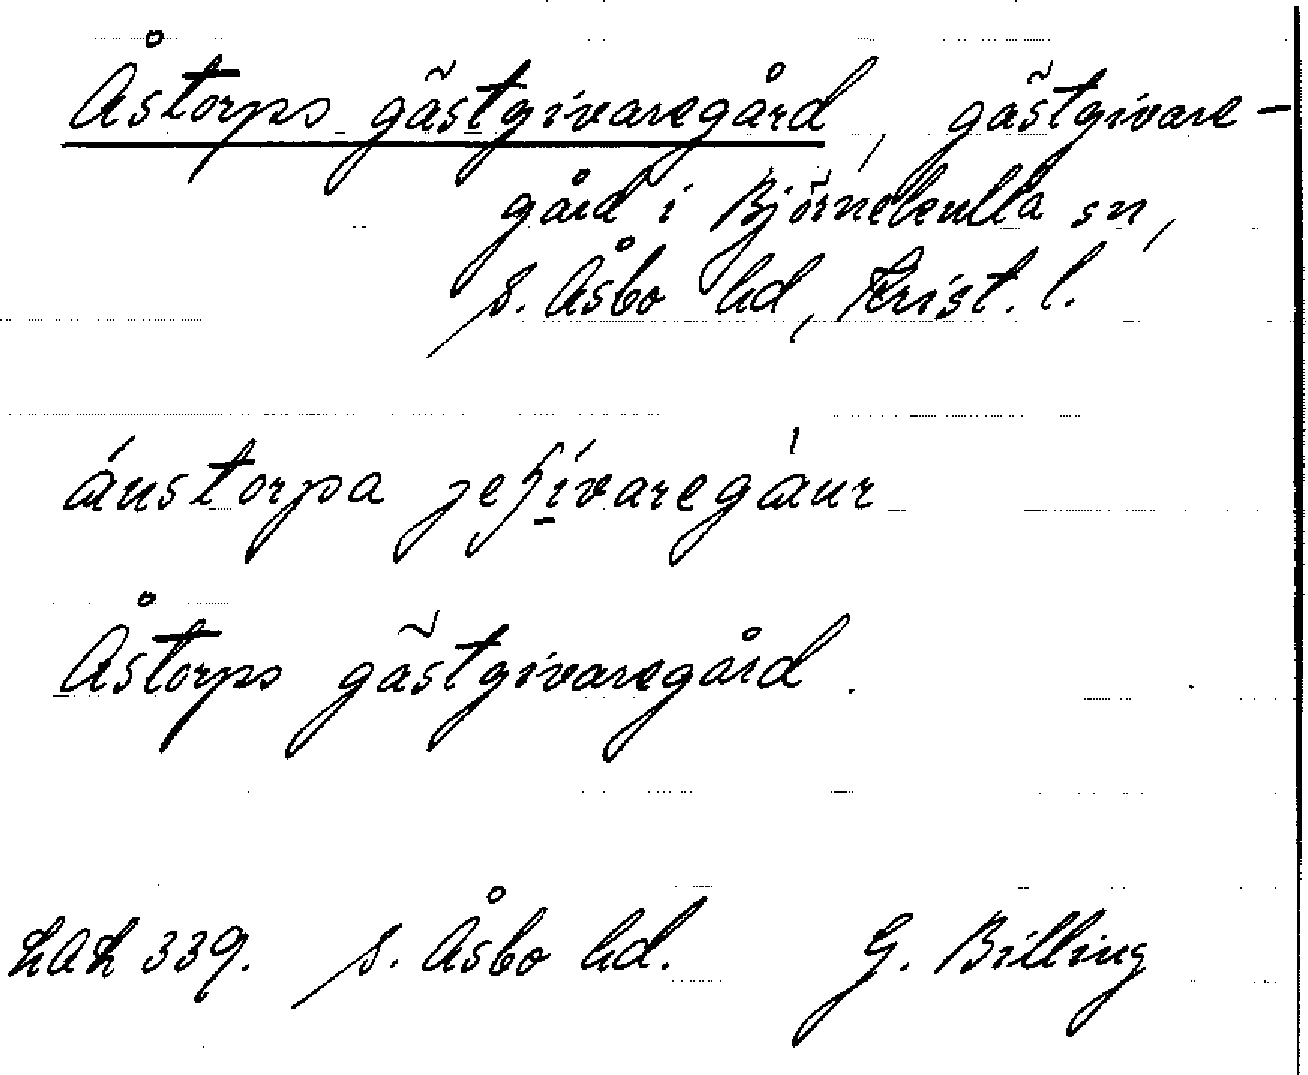 Åstorps gästgivaregård, gästgivare-
gård i Björnekulla sn,
S. Åsbo hd, Krist. l.
Åstorps gästgivaregård.
LAL 339. S. Åsbo hd. G. Billing